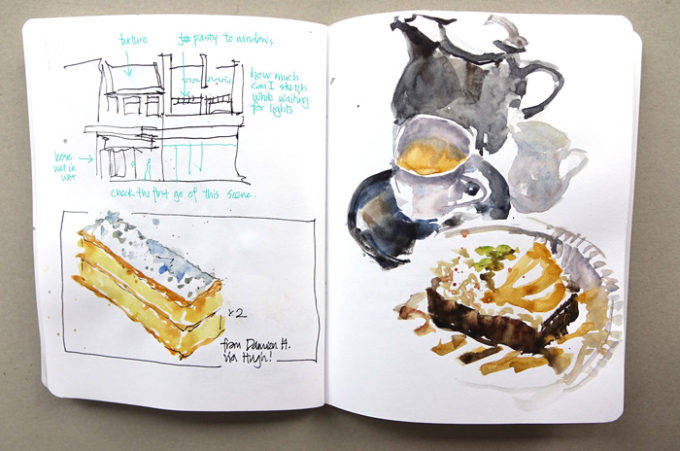 texture
pasty to windows
how much
can I sketch
while waiting
for lights
loose
wet in
wet
Check the first go of this scene.
x2
from Damien H.
via Hugh!